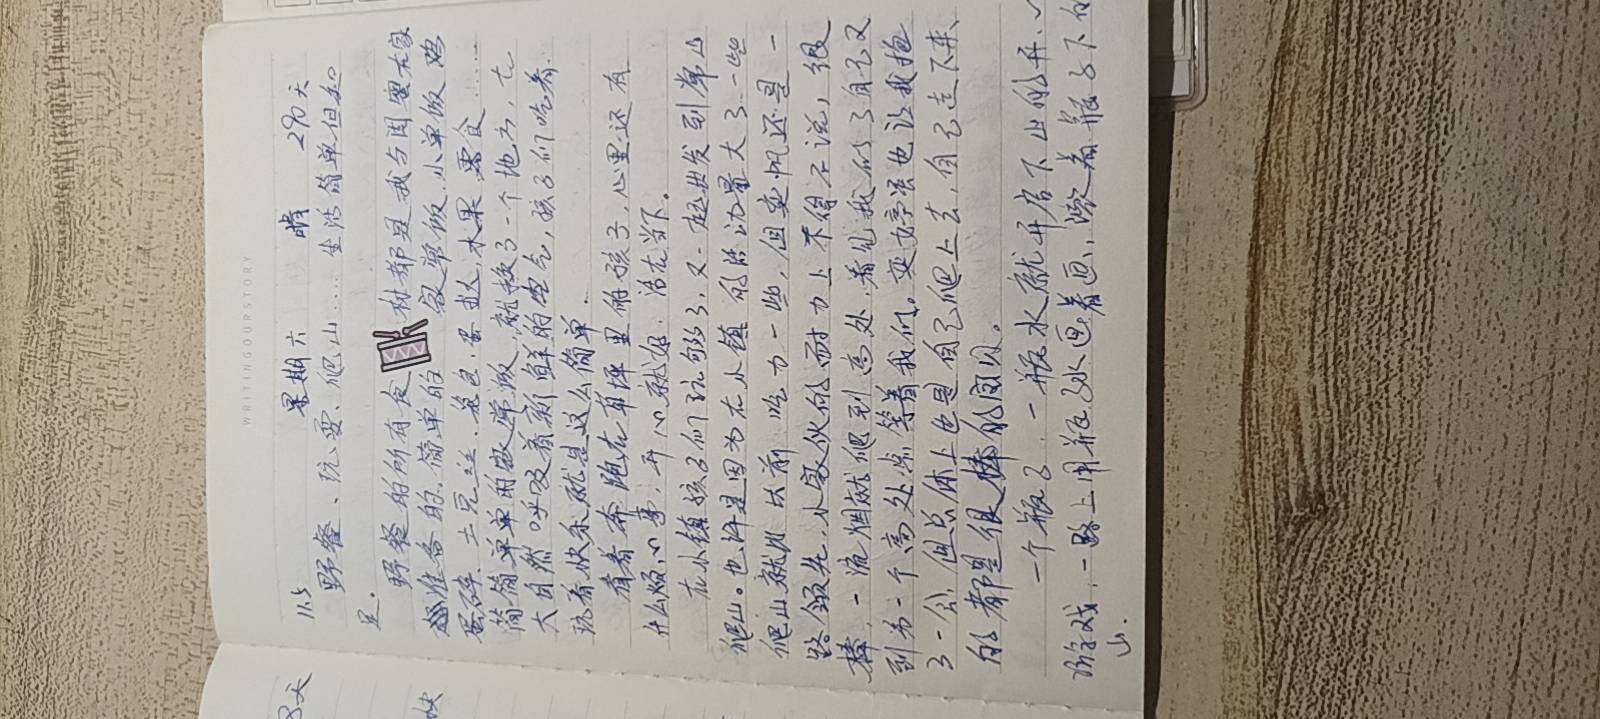 WRITINGOURSTORY
11.5 星期六 晴 290天
野餐、玩耍、爬山…… 生活简单但知
足。
野餐的所有食材都是我与闺蜜大家
准备的，简单的 寿司饭，小单饭，鸡
蛋碎、土豆丝、面包、蛋挞、水果、零食……
简简单单的搬弹搬，就换了一个地方，在
大自然呼吸着新鲜的空气，孩子们吃着
玩着快乐就是这么简单.
看着奔跑在草坪里的孩子，心里还有
什么烦心事，开心就好，活在当下。
在小镇孩子们玩够了，又一起出发到单山
爬山。也许是因为在小镇 的活动量大了一些
爬山就比以前 吃力一些，但奕帆还是一
路领先，小家伙的耐力上不得不说，很
棒，一溜烟就爬到高处，看见我们了自己又
到另一个高处等着我们。奕婷虽也让我抱
了一会，但总体上也是自己爬上去，自己走下来、
的 都是很棒的宝贝。
一个瓶子，一瓶水就开启下山的
游戏，一路上用瓶子水画着画，滚着瓶子下的
山.
8天
快